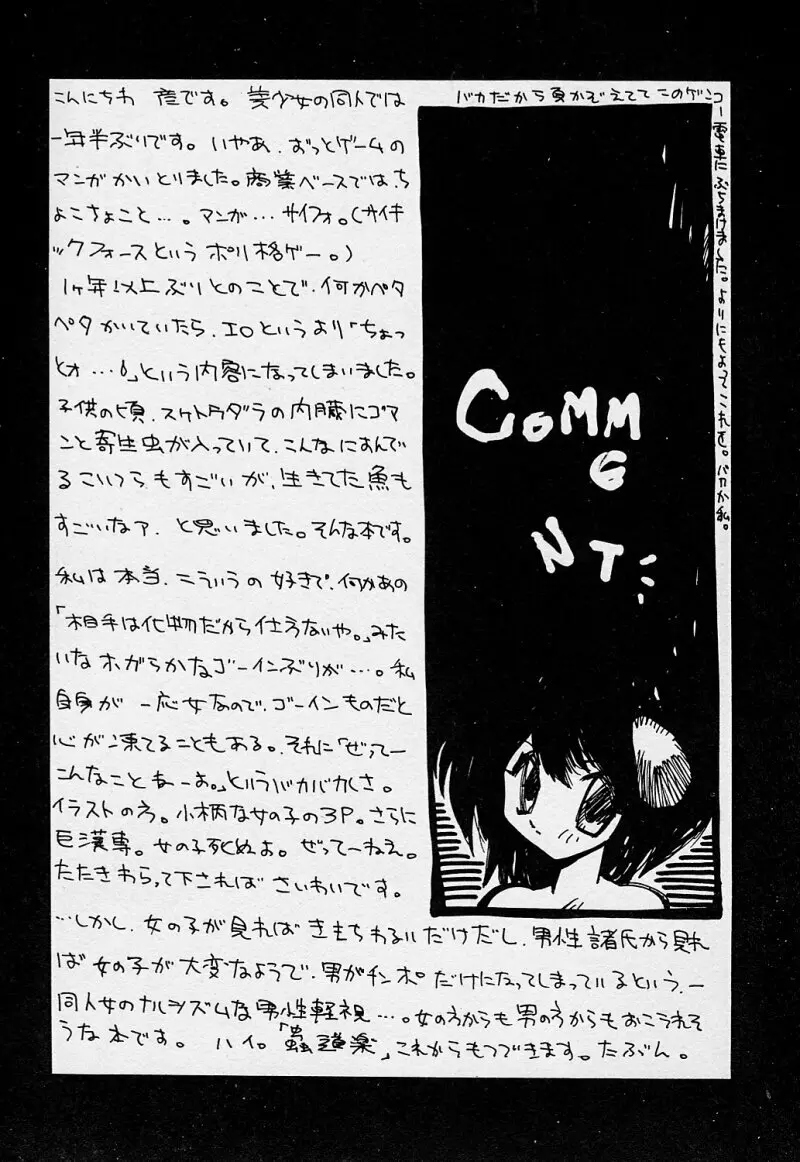 こんにちわ 産です。美少女の同人では
一年半ぶりです。いやあ、ずっとゲームの
マンガかいとりました。商業ベースではち
ょこちょこと…。マンガ…サイフォ。(サイキ
ックフォースというポリ格ゲー。)
1ヶ年以上ぶりとのことで、何かペタ
ペタかいていたら、エロというより「ちょっ
とォ…。」という内容になってしまいました。
子供の頃、スケトウダラの内臓にゴマ
ンと寄生虫が入っていて、こんなに
るこいつらもすごいが、生きてた魚も
すごいなァ、と思いました。そんな本です。
私は本当、こういうの好きで、何かあの
「相手は化物だから仕方ないや。」みた
いなホガらかなゴーインぶりが…。私
自身が一応女なので、ゴーインものだと
心が凍てることもある。それに「ぜってー
こんなことねーよ。」というバカバカしさ。
イラストの方。小柄な女の子の3P。さらに
巨漢専。女の子死ぬよ。ぜってーねえ。
たたきわらって下さればさいわいです。
…しかし、女の子が見ればきもちわるいだけだし、男性諸氏から見れ
ば女の子が大変なようで、男がチンポだけになってしまっているという、一
同人女のナルシズムな男性軽視…。女の方からも男の方からもおこられそ
うな本です。 ハイ。「蟲道楽」これからもつづきます。たぶん。
バカだから頁かぞえてて このゲンコー電車にぶちまけました。よりにもよってこれを。バカか私。
COMM
E
NT